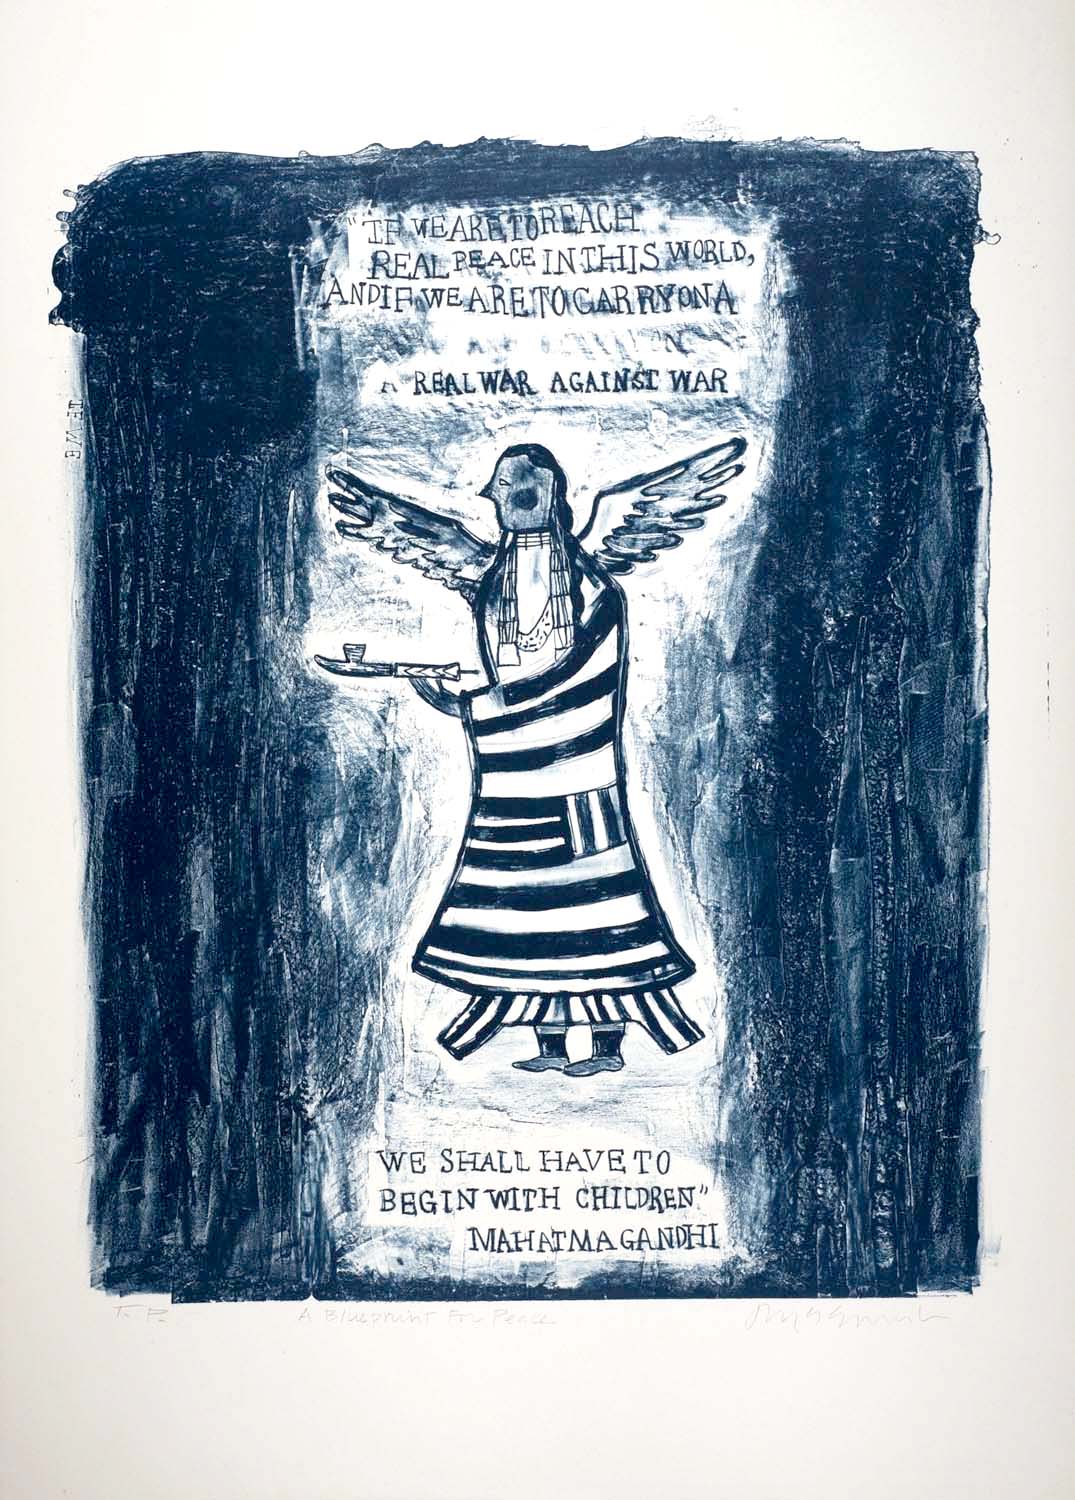 "IF WE ARE TO REACH
REAL PEACE IN THIS WORLD,
AND IF WE ARE TO CARRY ON A
A REAL WAR AGAINST WAR
IF WE
WE SHALL HAVE TO
BEGIN WITH CHILDREN"
MAHATMA GANDHI
T. P. A Blueprint For Peace